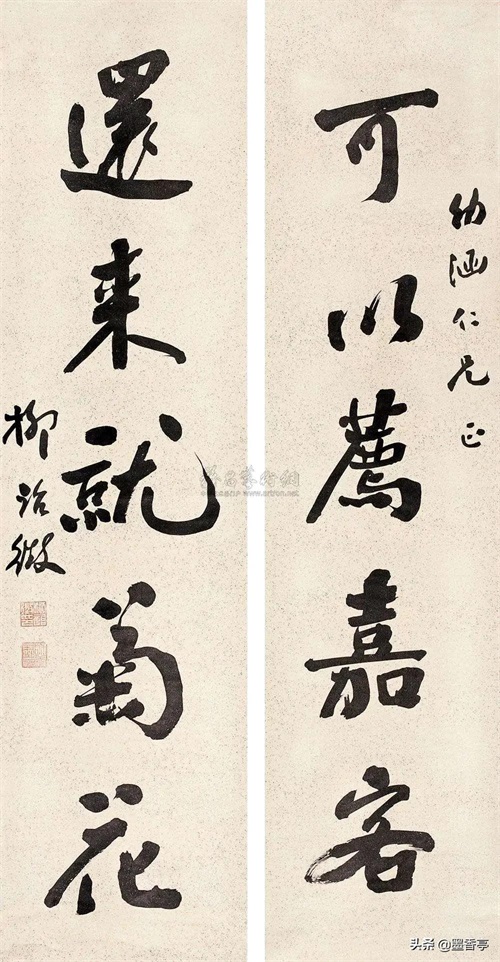 可以薦嘉客
幼涵仁兄正
還来就菊花
柳詒徵
头条@墨香亭